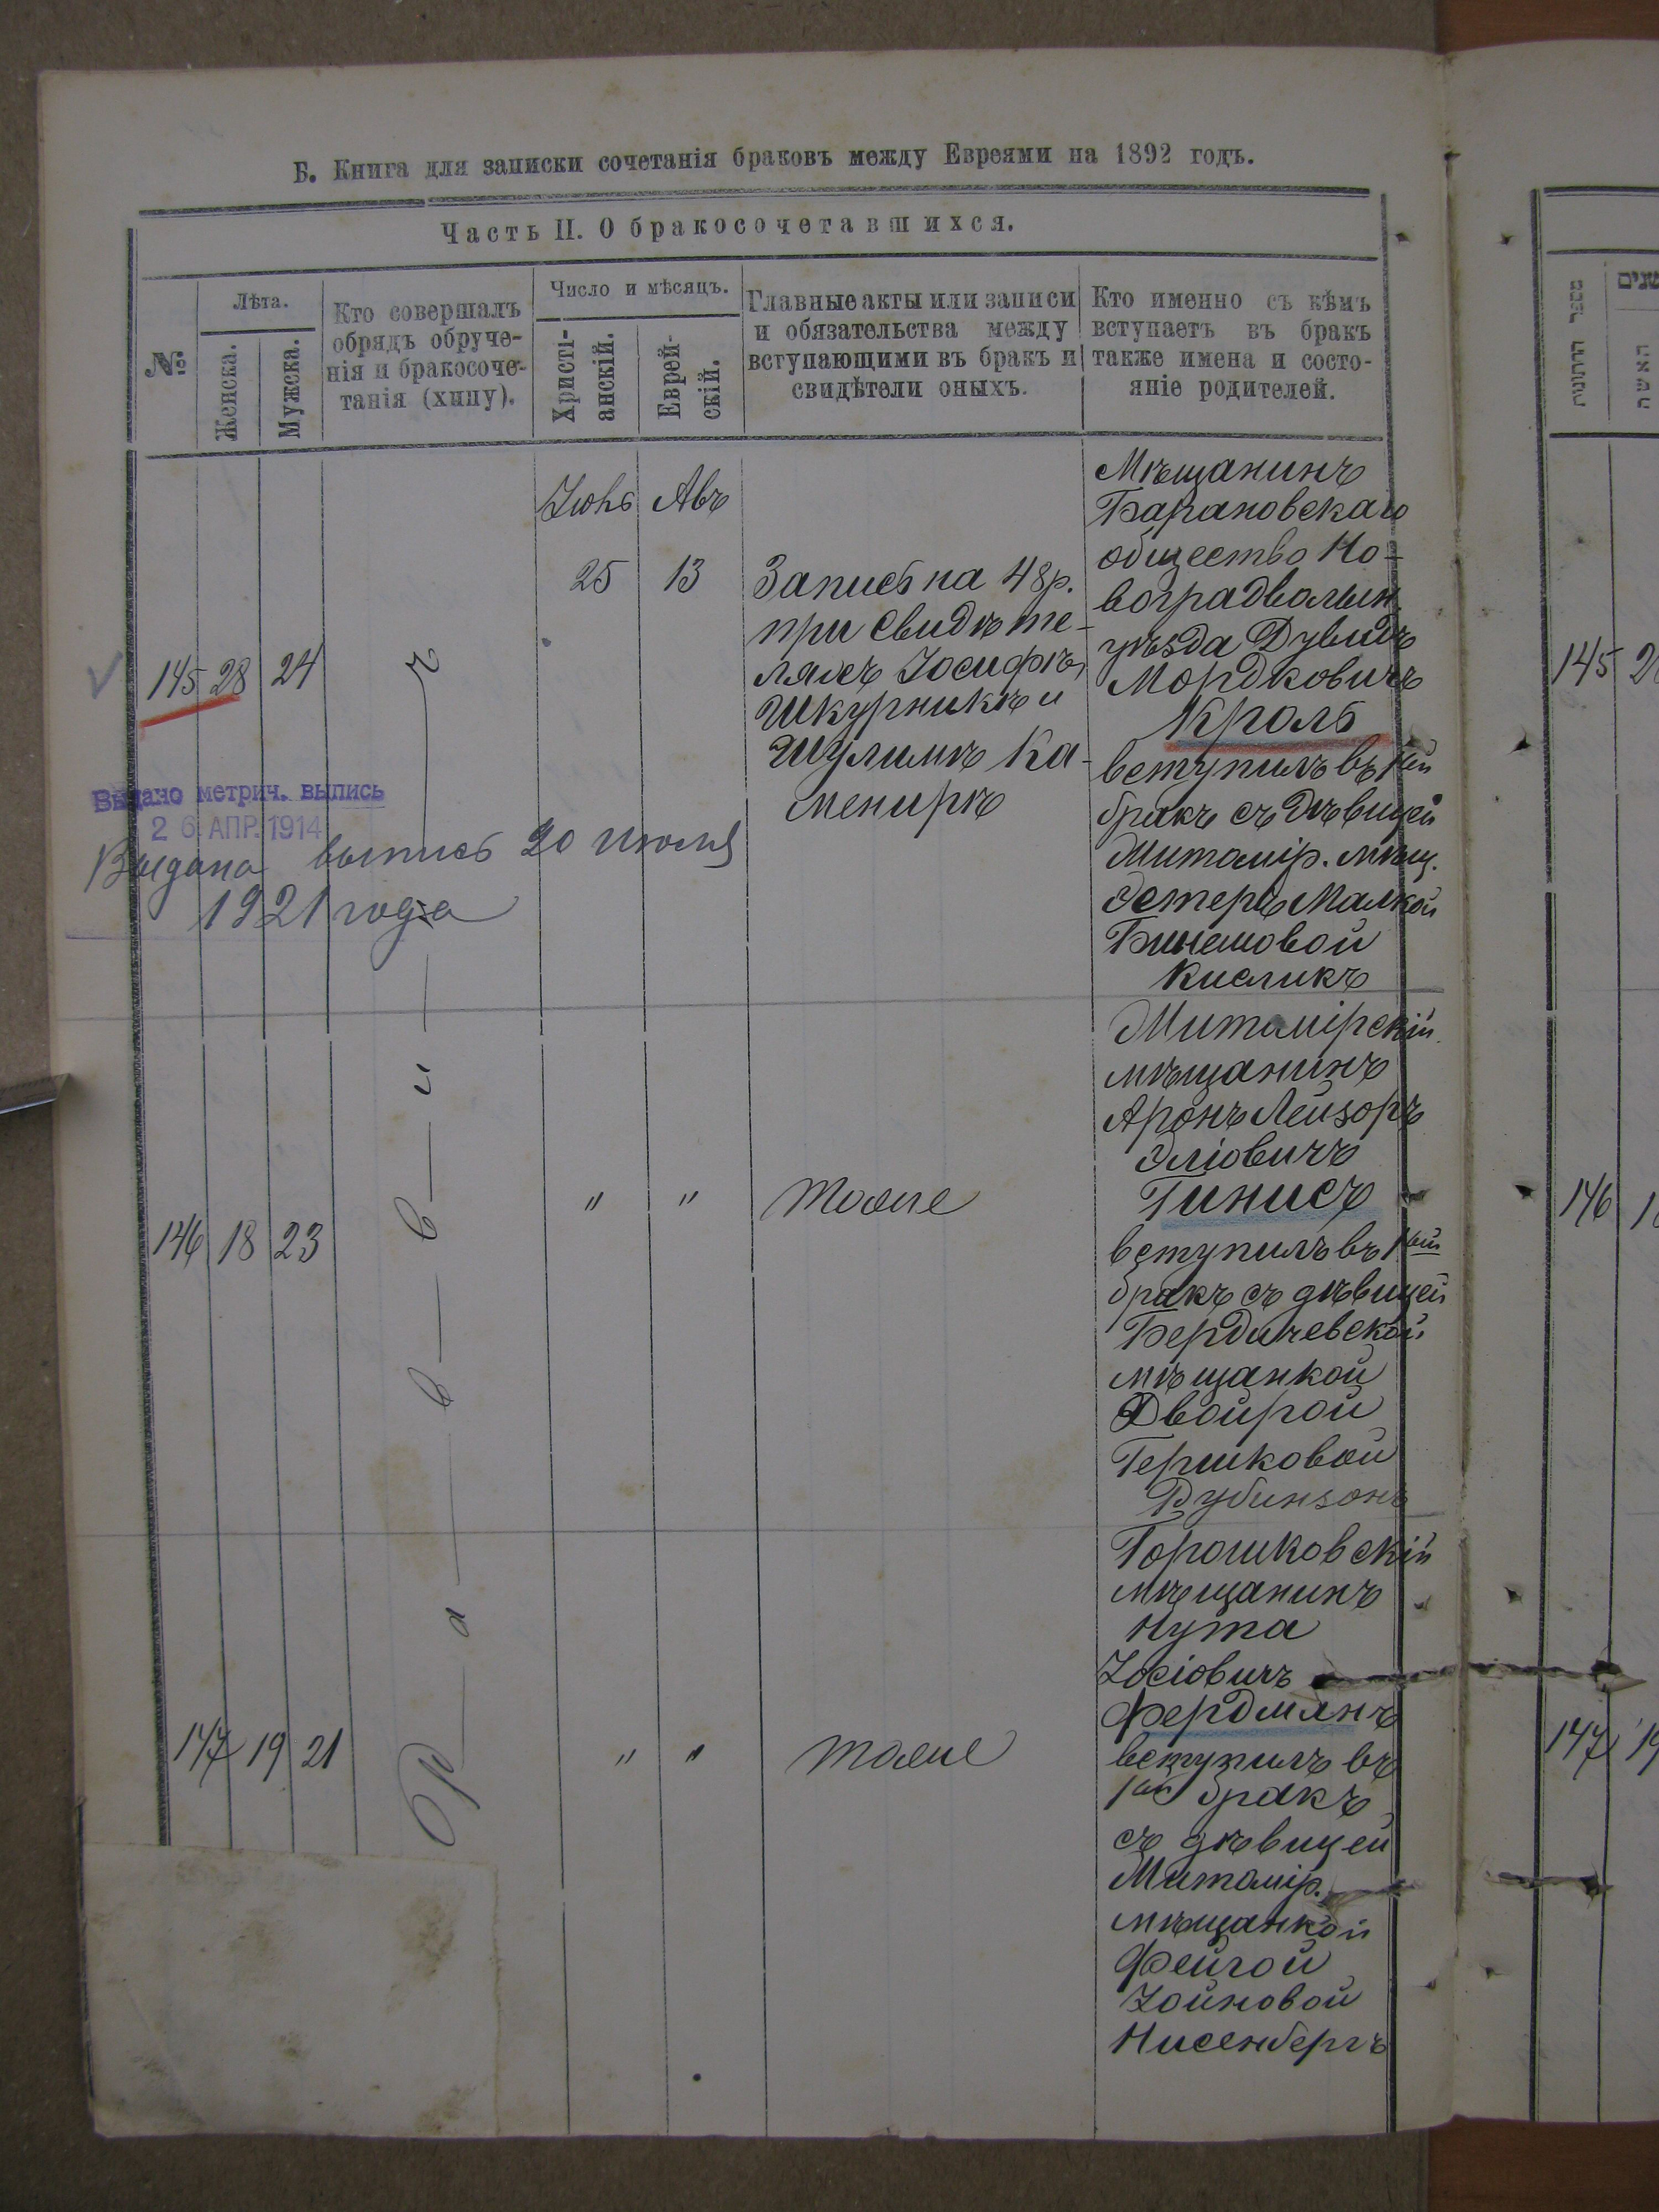 Б. Книга для записки сочетанія браковъ между Евреями на 1892 годъ.
Часть II. О бракосочетавшихся.
№
Лѣта.
Женска.
Мужска.
Кто совершалъ
обрядъ обруче-
нія и бракосоче-
танія (хипу).
Число и мѣсяцъ.
Христі-
анскій.
Еврей-
скій.
Главные акты или записи
и обязательства между
вступающими въ бракъ и
свидѣтели оныхъ.
Кто именно съ кѣмъ
вступаетъ въ бракъ
также имена и состо-
яніе родителей.
Авъ
145 28 24
25 13
Запись на 48 р.
при свидѣте-
ляхъ Іосифѣ
Шкурникѣ и
Шулимѣ Ка-
менирѣ
Мѣщанинъ
Барановскаго
общество Но-
воградволын.
уѣзда Дувидъ
Мордковичъ
Кроль
вступилъ въ 1ый
бракъ съ дѣвицей
Житомір. мѣщ.
Эстеръ Малкой
Бинемовой
Кисликъ
Выдано метрич. выпись
26 АПР. 1914
Выдана выпись 20 июля
1921 года
146 18 23
" "
тоже
Житомірскій
мѣщанинъ
Аронъ Лейзоръ
Эліовичъ
Гинисъ
вступилъ въ 1ый
бракъ съ дѣвицей
Бердичевской
мѣщанкой
Двойрой
Гершковой
Рубинзонъ
147 19 21
" "
тоже
Горошковскій
мѣщанинъ
Нута
Іосіовичъ
Фердманъ
вступилъ въ
1ый бракъ
съ дѣвицей
Житомір.
мѣщанкой
Фейгой
Іойновой
Нисенбергъ
Р а в в и н ъ
מספר
שנים
האשה
145 2
146 1
147 19